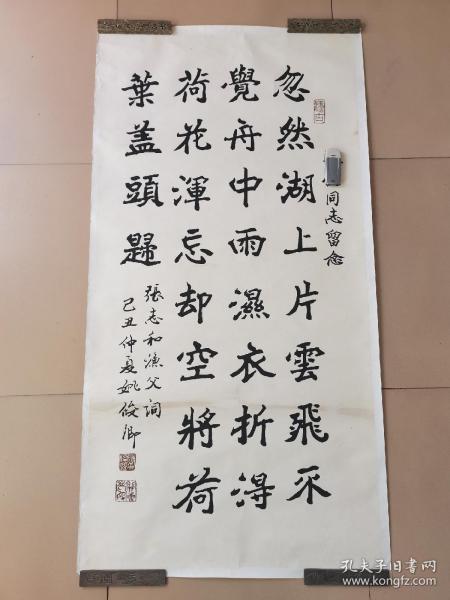 同志留念
忽然湖上片雲飛不
覺舟中雨濕衣折得
荷花渾忘却空將荷
葉盖頭歸
張志和漁父詞
己丑仲夏姚俊卿
孔夫子旧书网
https://book.kongfz.com/